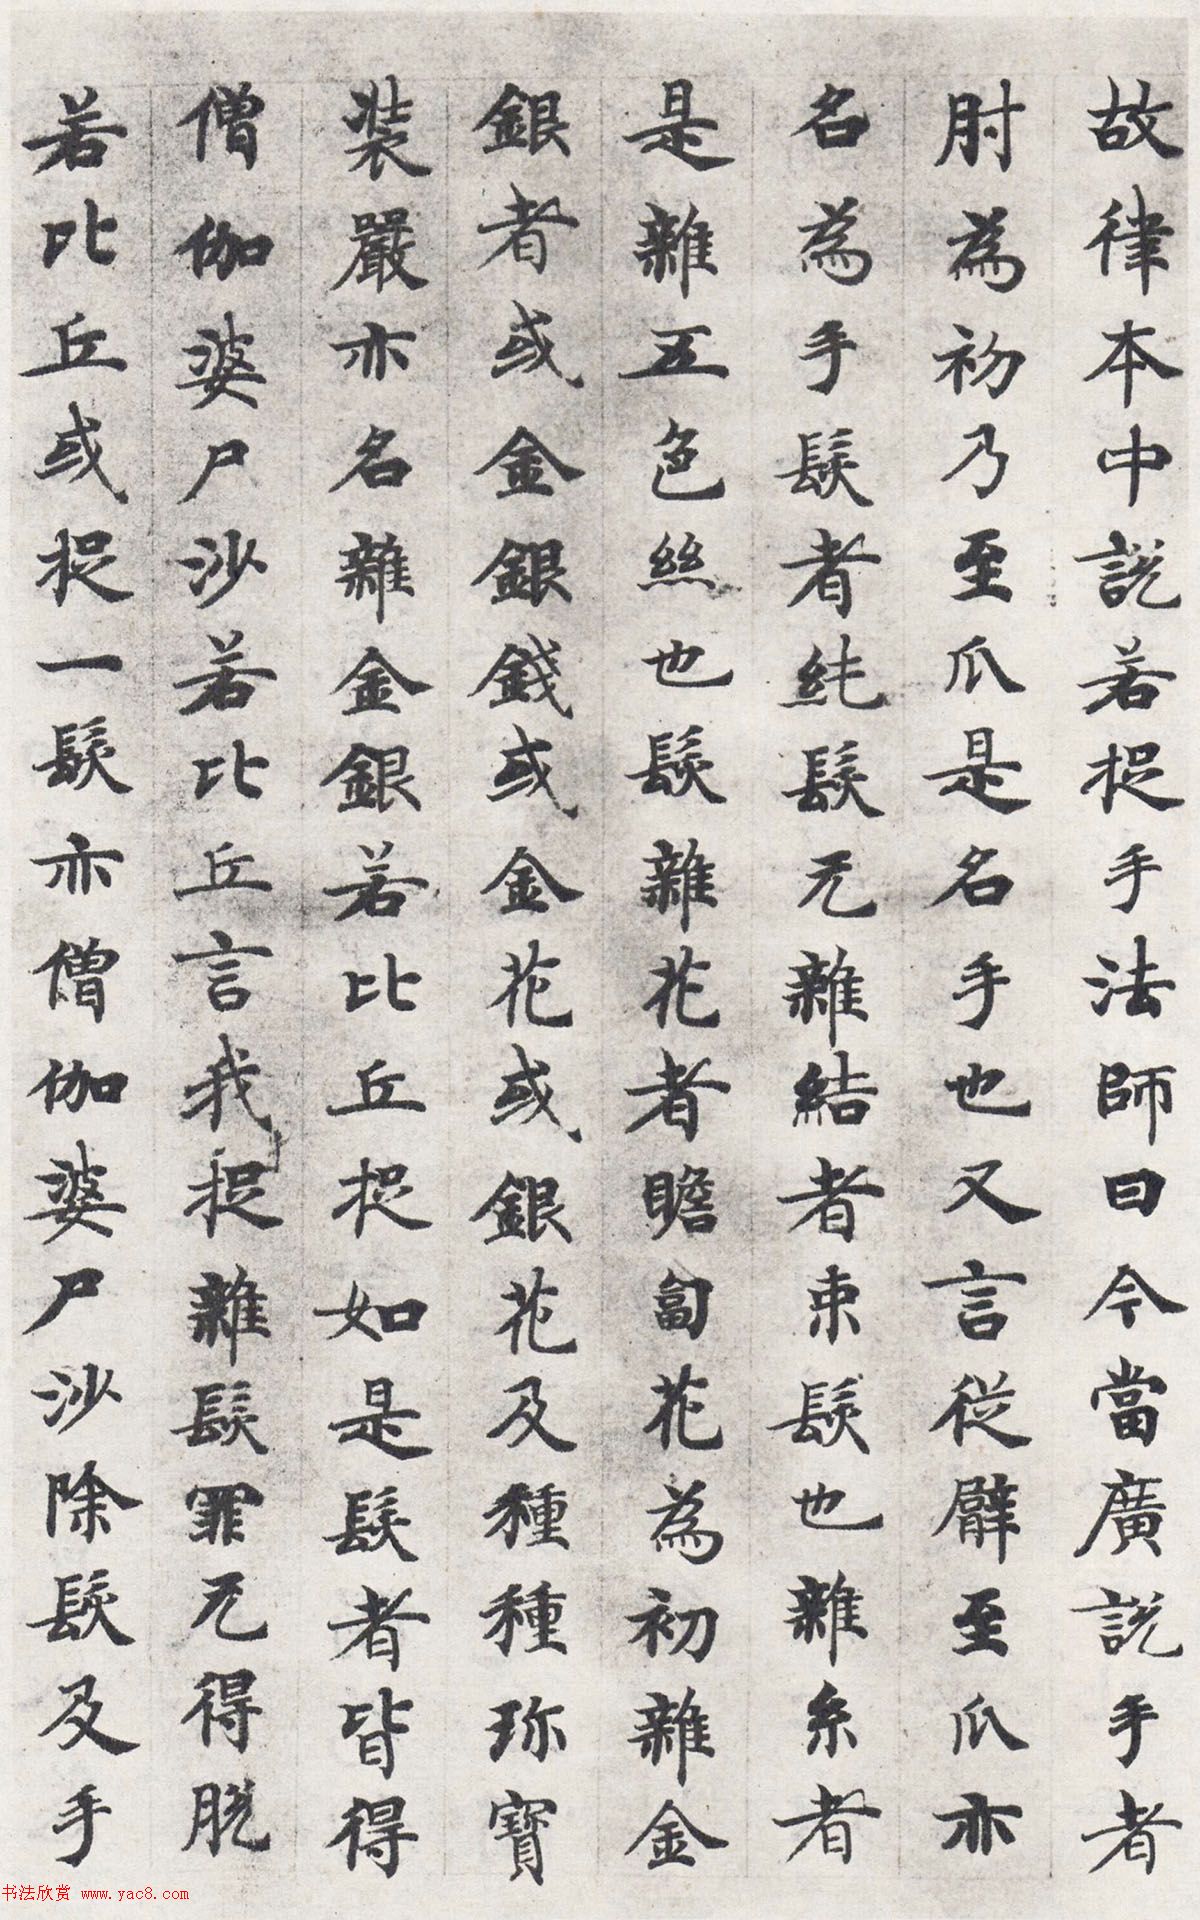 故律本中說若捉手法師曰今當廣說手者
肘為初乃至爪是名手也又言從臂至爪亦
名為手髮者純髮无雜結者束髮也雜糸者
是雜五色絲也髮雜花者瞻匐花為初雜金
銀者或金銀錢或金花或銀花及種種珎寶
裝嚴亦名雜金銀若比丘捉如是髮者皆得
僧伽婆尸沙若比丘言我捉雜髮罪无得脫
若比丘或捉一髮亦僧伽婆尸沙除髮及手
书法欣赏 www.yac8.com